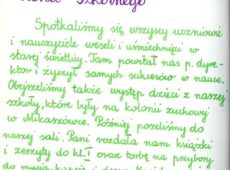 szkolnego
Spotkaliśmy się wszyscy uczniowie
i nauczyciele weseli i uśmiechnięci w
starej świetlicy. Tam powitał nas p. dyre-
ktor i życzył samych sukcesów w nauce.
Obejrzeliśmy także występ dzieci z naszej
szkoły, które były na kolonii zuchowej
w Mikaszówce. Później poszliśmy do
naszej sali. Pani rozdała nam książki
i zeszyty do kl. I oraz torbę na przybory
do mycia